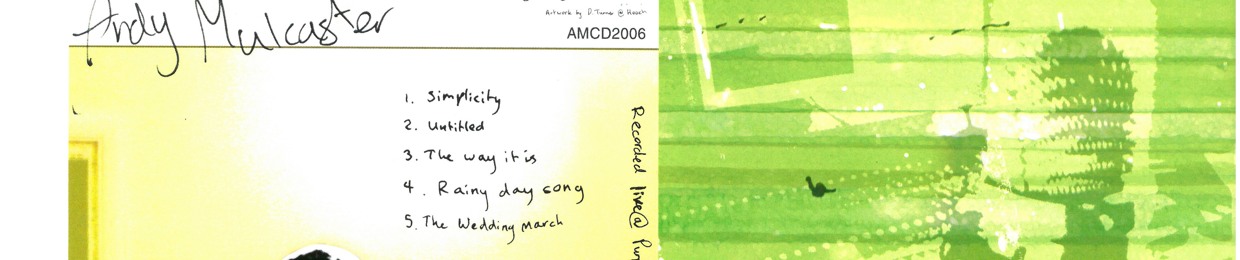 Artwork by D. Turner @ Hooch
Andy Mulcaster
AMCD2006
1. Simplicity
2. Untitled
3. The way it is
4. Rainy day song
5. The Wedding march
Recorded live@